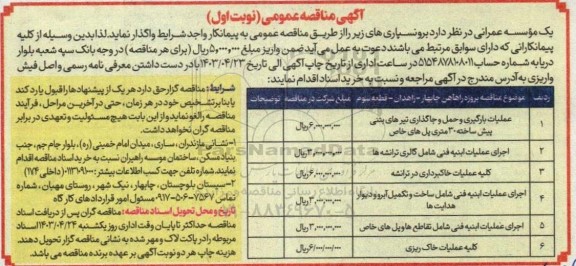 آگهی مناقصه عمومی (نوبت اول)
یک مؤسسه عمرانی در نظر دارد برونسپاری های زیر را از طریق مناقصه عمومی به پیمانکار واجد شرایط واگذار نماید. لذا بدین وسیله از کلیه
پیمانکارانی که دارای سوابق مرتبط می باشند دعوت به عمل می آید ضمن واریز مبلغ ۵,۰۰۰,۰۰۰ ریال (برای هر مناقصه) در وجه بانک سپه شعبه بلوار
دریا به شماره حساب در ساعت اداری از تاریخ چاپ آگهی الی تاریخ ۱۴۰۳/۰۴/۲۳ با در دست داشتن معرفی نامه رسمی و اصل فیش
واریزی به آدرس مندرج در آگهی مراجعه و نسبت به خرید اسناد اقدام نمایند:
ردیف موضوع مناقصه پروژه راه آهن چابهار - زاهدان - قطعه سوم مبلغ شرکت در مناقصه توضیحات
۱ عملیات بارگیری و حمل و جاگذاری تیر های بتنی پیش ساخته ۳۰ متری پل های خاص ۶,۰۰۰,۰۰۰,۰۰۰ ریال
۲ اجرای عملیات ابنیه فنی شامل گالری ترانشه ها
۳ کلیه عملیات خاکبرداری در ترانشه
۴ اجرای عملیات ابنیه فنی شامل ساخت و تکمیل آبرو و دیوار هدایت ها ۳,۰۰۰,۰۰۰,۰۰۰ ریال
۵ اجرای عملیات ابنیه فنی شامل تقاطع ها و پل های خاص
۶ کلیه عملیات خاک ریزی
شرایط: مناقصه گزار حق دارد هر یک از پیشنهادها را قبول یا رد کند
یا بنا بر تشخیص خود در هر زمان، حتی در آخرین مراحل، فرآیند
مناقصه را لغو نماید و از این بابت هیچ مسئولیت و تعهدی در برابر
مناقصه گران نخواهد داشت.
۱- نشانی: مازندران، ساری، میدان امام خمینی (ره)، بلوار جام جم، جنب
بنیاد مسکن، ساختمان موسسه راهبران نسبت به خرید اسناد مناقصه اقدام
نمایند. شماره تلفن جهت کسب اطلاعات بیشتر: (داخلی ۱۷۴)
۲- سیستان و بلوچستان، چابهار، نیک شهر، روستای مهبان، شماره
تماس مسئول امور قراردادهای کارگاه
تاریخ و محل تحویل اسناد مناقصه: مناقصه گران پس از دریافت اسناد
مناقصه حداکثر تا پایان وقت اداری روز یکشنبه ۱۴۰۳/۰۴/۲۴ اسناد
مربوطه را در پاکت لاک و مهر شده به نشانی مناقصه گزار تحویل دهند.
هزینه چاپ هر دو نوبت آگهی بر عهده برنده مناقصه می باشد.